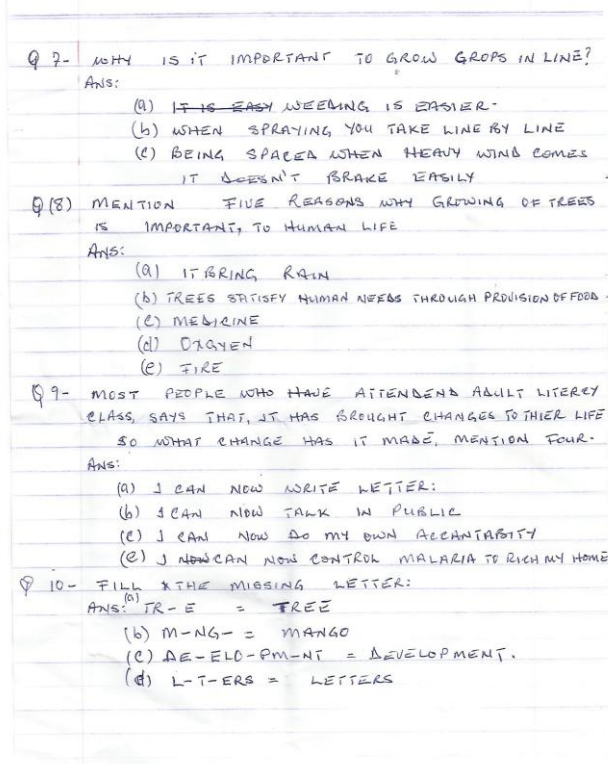 Q 7- WHY IS IT IMPORTANT TO GROW GROPS IN LINE?
ANS:
(a) IT IS EASY WEEDING IS EASIER.
(b) WHEN SPRAYING YOU TAKE LINE BY LINE
(c) BEING SPACED WHEN HEAVY WIND COMES
IT DOESN'T BRAKE EASILY
Q (8) MENTION FIVE REASONS WHY GROWING OF TREES
IS IMPORTANT, TO HUMAN LIFE
ANS:
(a) IT BRING RAIN
(b) TREES SATISFY HUMAN NEEDS THROUGH PROVISION OF FOOD.
(c) MEDICINE
(d) OXGYEN
(e) FIRE
Q 9- MOST PEOPLE WHO HAVE ATTENDEND ADULT LITERCY
CLASS, SAYS THAT, IT HAS BROUGHT CHANGES TO THIER LIFE
SO WHAT CHANGE HAS IT MADE, MENTION FOUR.
ANS:
(a) I CAN NOW WRITE LETTER:
(b) I CAN NOW TALK IN PUBLIC
(c) I CAN NOW DO MY OWN ACCANTABITY
(e) I NOW CAN NOW CONTROL MALARIA TO RICH MY HOME
Q 10- FILL THE MISSING LETTER:
ANS: (a) TR-E = TREE
(b) M-NG- = MANGO
(c) DE-ELO-PM-NT = DEVELOPMENT.
(d) L-T-ERS = LETTERS